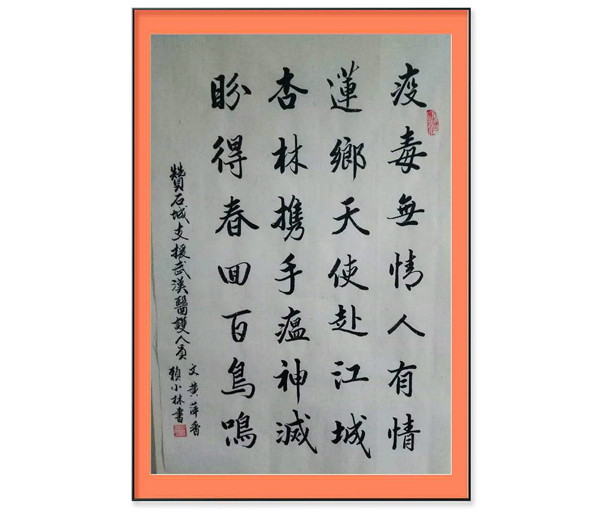 疫毒無情人有情
蓮鄉天使赴江城
杏林携手瘟神滅
盼得春回百鳥鳴
贊石城支援武漢醫護人員
文黄萍香
賴小林書